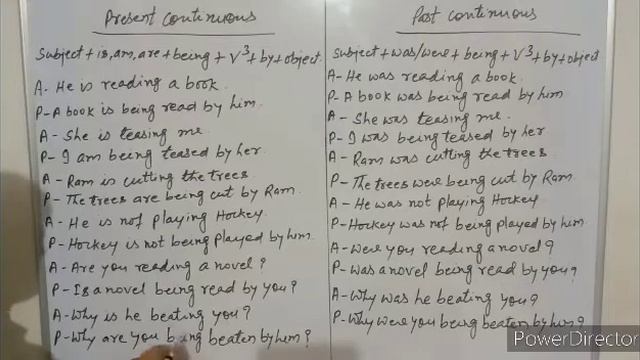 Present continuous
Subject + is, am, are + being + V³ + by + object
A- He is reading a book.
P- A book is being read by him.
A- She is teasing me.
P- I am being teased by her.
A- Ram is cutting the trees.
P- The trees are being cut by Ram.
A- He is not playing Hockey.
P- Hockey is not being played by him.
A- Are you reading a novel?
P- Is a novel being read by you?
A- Why is he beating you?
P- Why are you being beaten by him?
Past continuous
Subject + was/were + being + V³ + by + object
A- He was reading a book.
P- A book was being read by him
A- She was teasing me.
P- I was being teased by her
A- Ram was cutting the trees
P- The trees were being cut by Ram.
A- He was not playing Hockey
P- Hockey was not being played by him
A- Were you reading a novel?
P- Was a novel being read by you?
A- Why was he beating you?
P- Why were you being beaten by him?
PowerDirector